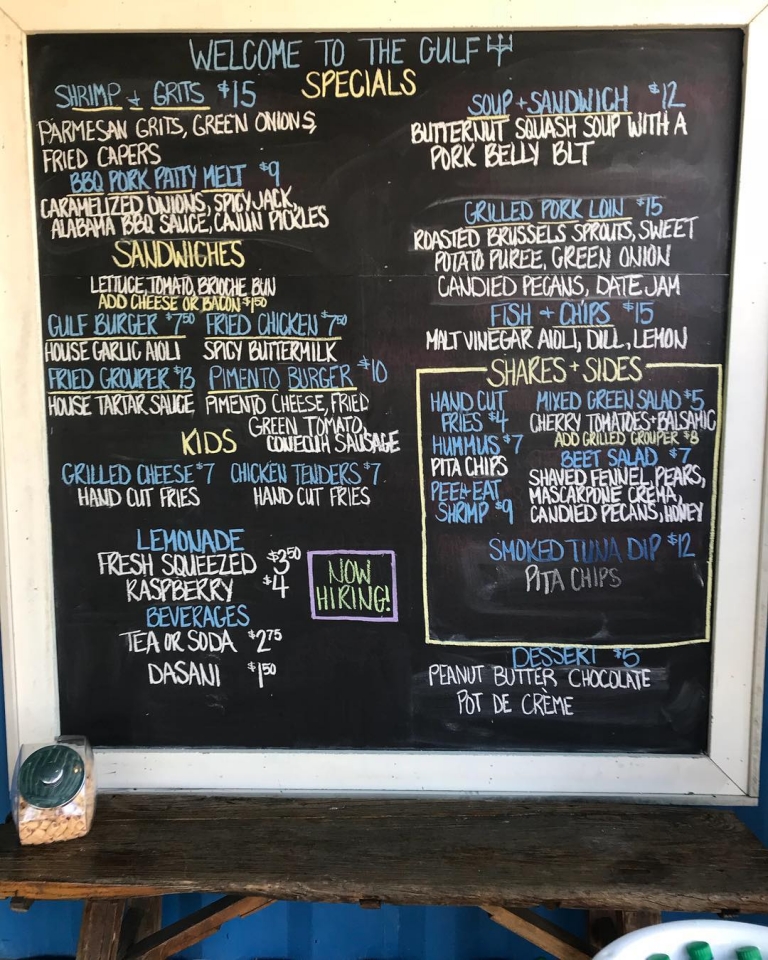 WELCOME TO THE GULF
SPECIALS
SHRIMP + GRITS $15
PARMESAN GRITS, GREEN ONIONS,
FRIED CAPERS
BBQ PORK PATTY MELT $9
CARAMELIZED ONIONS, SPICY JACK,
ALABAMA BBQ SAUCE, CAJUN PICKLES
SOUP + SANDWICH $12
BUTTERNUT SQUASH SOUP WITH A
PORK BELLY BLT
GRILLED PORK LOIN $15
ROASTED BRUSSELS SPROUTS, SWEET
POTATO PUREE, GREEN ONION
CANDIED PECANS, DATE JAM
FISH + CHIPS $15
MALT VINEGAR AIOLI, DILL, LEMON
SANDWICHES
LETTUCE, TOMATO, BRIOCHE BUN
ADD CHEESE OR BACON $1.50
GULF BURGER $7.50 FRIED CHICKEN $7.50
HOUSE GARLIC AIOLI SPICY BUTTERMILK
FRIED GROUPER $13 PIMENTO BURGER $10
HOUSE TARTAR SAUCE PIMENTO CHEESE, FRIED
GREEN TOMATO,
CONECUH SAUSAGE
KIDS
GRILLED CHEESE $7 CHICKEN TENDERS $7
HAND CUT FRIES HAND CUT FRIES
LEMONADE
FRESH SQUEEZED $3.50
RASPBERRY $4
BEVERAGES
TEA OR SODA $2.75
DASANI $1.50
NOW
HIRING!
SHARES + SIDES
HAND CUT
FRIES $4
HUMMUS $7
PITA CHIPS
PEEL+EAT
SHRIMP $9
MIXED GREEN SALAD $5
CHERRY TOMATOES+BALSAMIC
ADD GRILLED GROUPER $8
BEET SALAD $7
SHAVED FENNEL, PEARS,
MASCARPONE CREMA,
CANDIED PECANS, HONEY
SMOKED TUNA DIP $12
PITA CHIPS
DESSERT $5
PEANUT BUTTER CHOCOLATE
POT DE CRÈME